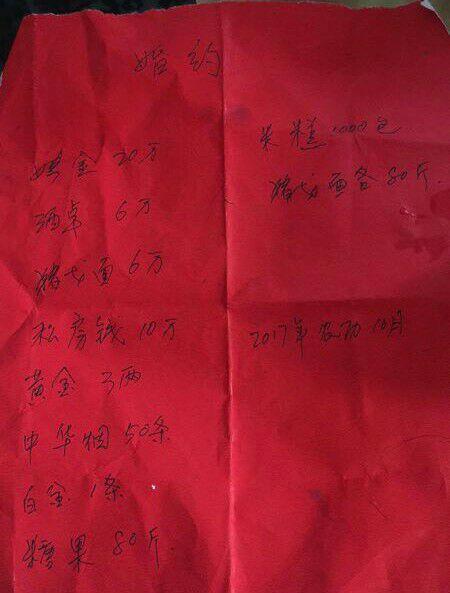 婚约
娉金20万
酒卓6万
猪戈面6万
私房钱10万
黄金3两
中华烟50条
白金1条
糖果80斤.
糕1000包
猪戈面各80斤.
2017年农历10月